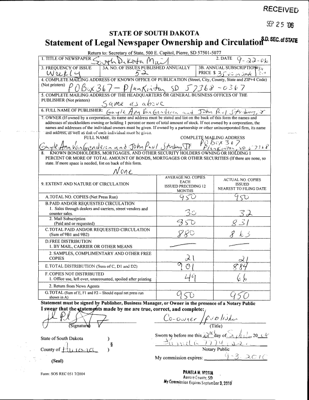 RECEIVED
SEP 25 '06
S.D. SEC. OF STATE
STATE OF SOUTH DAKOTA
Statement of Legal Newspaper Ownership and Circulation
Return to: Secretary of State, 500 E. Capitol, Pierre, SD 57501-5077
1. TITLE OF NEWSPAPER South Dakota Mail
2. DATE 9-22-06
3. FREQUENCY OF ISSUE Weekly
3A. NO. OF ISSUES PUBLISHED ANNUALLY 52
3B. ANNUAL SUBSCRIPTION PRICE $
4. COMPLETE MAILING ADDRESS OF KNOWN OFFICE OF PUBLICATION (Street, City, County, State and ZIP+4 Code) (Not printers)
PO Box 367 - Plankinton SD 57368-0367
5. COMPLETE MAILING ADDRESS OF THE HEADQUARTERS OF GENERAL BUSINESS OFFICES OF THE PUBLISHER (Not printers)
Same as above
6. FULL NAME OF PUBLISHER:
7. OWNER (If owned by a corporation, its name and address must be stated and list on the back of this form the names and addresses of stockholders owning or holding 1 percent or more of total amount of stock. If not owned by a corporation, the names and addresses of the individual owners must be given. If owned by a partnership or other unincorporated firm, its name and address, as well as that of each individual must be given.
FULL NAME
COMPLETE MAILING ADDRESS
PO Box 367
8. KNOWN BONDHOLDERS, MORTGAGEES, AND OTHER SECURITY HOLDERS OWNING OR HOLDING 1 PERCENT OR MORE OF TOTAL AMOUNT OF BONDS, MORTGAGES OR OTHER SECURITIES (If there are none, so state. If more space is needed, list on back of this form.
None
9. EXTENT AND NATURE OF CIRCULATION
AVERAGE NO. COPIES EACH ISSUED PRECEDING 12 MONTHS
ACTUAL NO. COPIES ISSUED NEAREST TO FILING DATE
A. TOTAL NO. COPIES (Net Press Run) 950 950
B. PAID AND/OR REQUESTED CIRCULATION
1. Sales through dealers and carriers, street vendors and counter sales. 30 32
2. Mail Subscription (Paid and or requested) 850 831
C. TOTAL PAID AND/OR REQUESTED CIRCULATION (Sum of 9B1 and 9B2) 880 863
D. FREE DISTRIBUTION
1. BY MAIL, CARRIER OR OTHER MEANS
2. SAMPLES, COMPLIMENTARY AND OTHER FREE COPIES 21 21
E. TOTAL DISTRIBUTION (Sum of C, D1 and D2) 901 884
F. COPIES NOT DISTRIBUTED
1. Office use, left over, unaccounted, spoiled after printing 49 66
2. Return from News Agents
G. TOTAL (Sum of E, F1 and F2 - Should equal net press run shown in A) 950 950
Statement must be signed by Publisher, Business Manager, or Owner in the presence of a Notary Public
I swear that the statements made by me are true, correct, and complete:
Co-owner / publisher
(Signature)
(Title)
State of South Dakota
County of
Sworn to before me this
Notary Public
(Seal)
My commission expires: